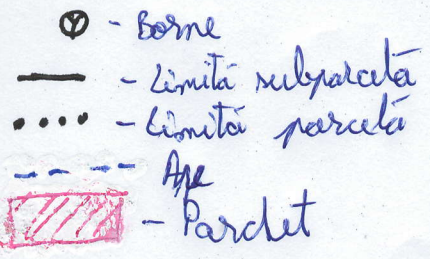 - Borne
- Limită subparcelă
- Limită parcelă
Ape
- Parchet